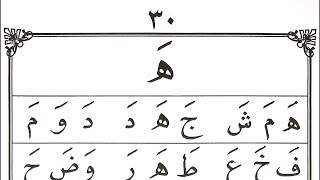 ٣٠
هَ
هُ مَ شَ جَ هَ دَ دَ وَ مَ
فَ خَ عَ طَ هَ رَ وَ ضَ حَ